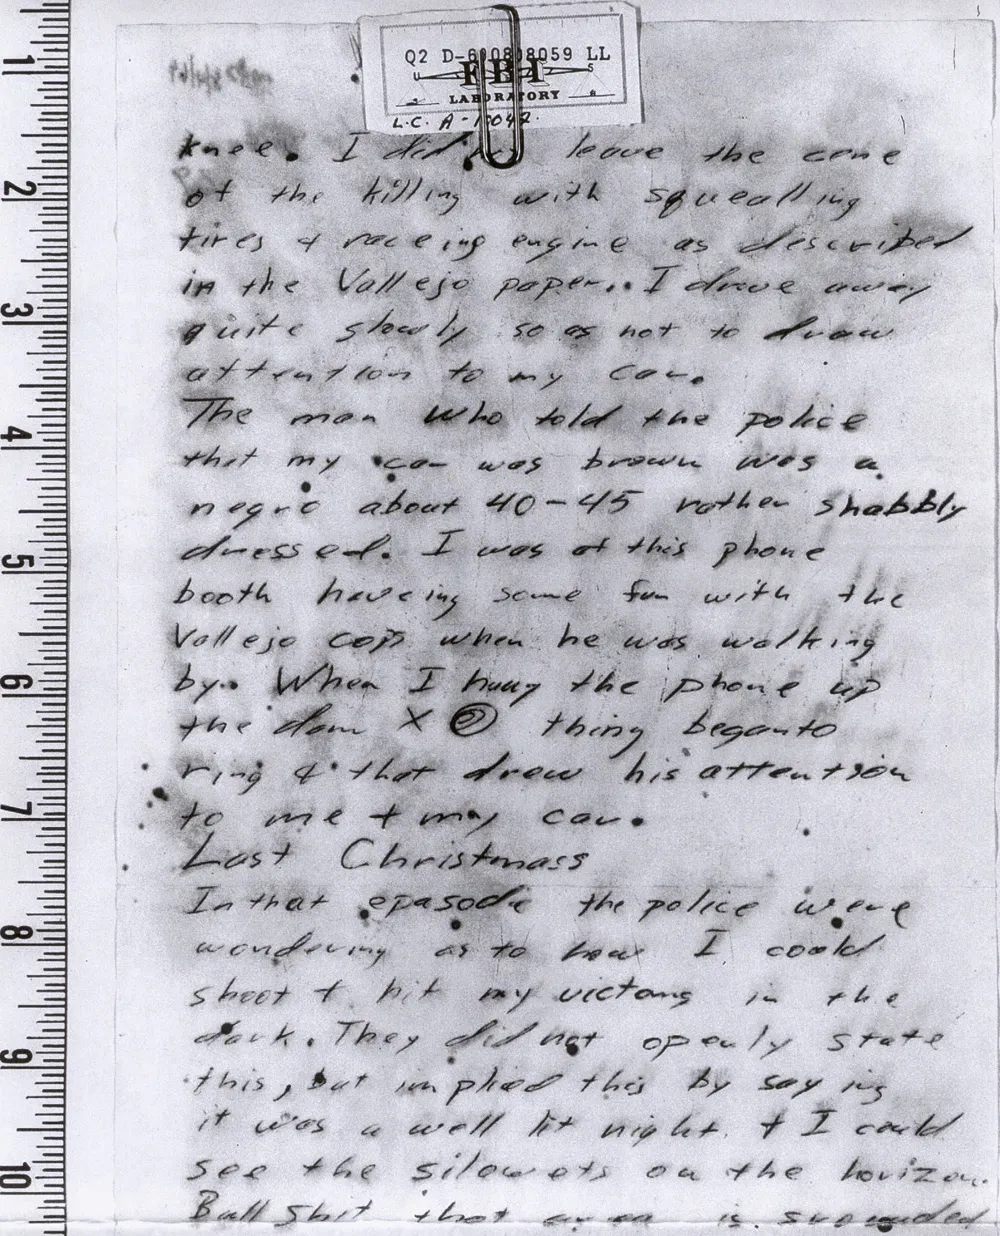 Q2 D-600808059 LL
U S
FBI
LABORATORY
L.C. A-10042
knee. I did leave the cene
of the killing with squealling
tires & raceing engine as described
in the Vallejo paper. I drove away
quite slowly so as not to draw
attention to my car.
The man who told the police
that my car was brown was a
negro about 40-45 rather shabbly
dressed. I was at this phone
booth haveing some fun with the
Vallejo cops when he was walking
by. When I hung the phone up
the dam X @ thing began to
ring & that drew his attention
to me + my car.
Last Christmass
In that epasode the police were
wondering as to how I could
shoot + hit my victoms in the
dark. They did not openly state
this, but implied this by saying
it was a well lit night + I could
see the silowets on the horizon.
Bull Shit that area is srounded
1
2
3
4
5
6
7
8
9
10